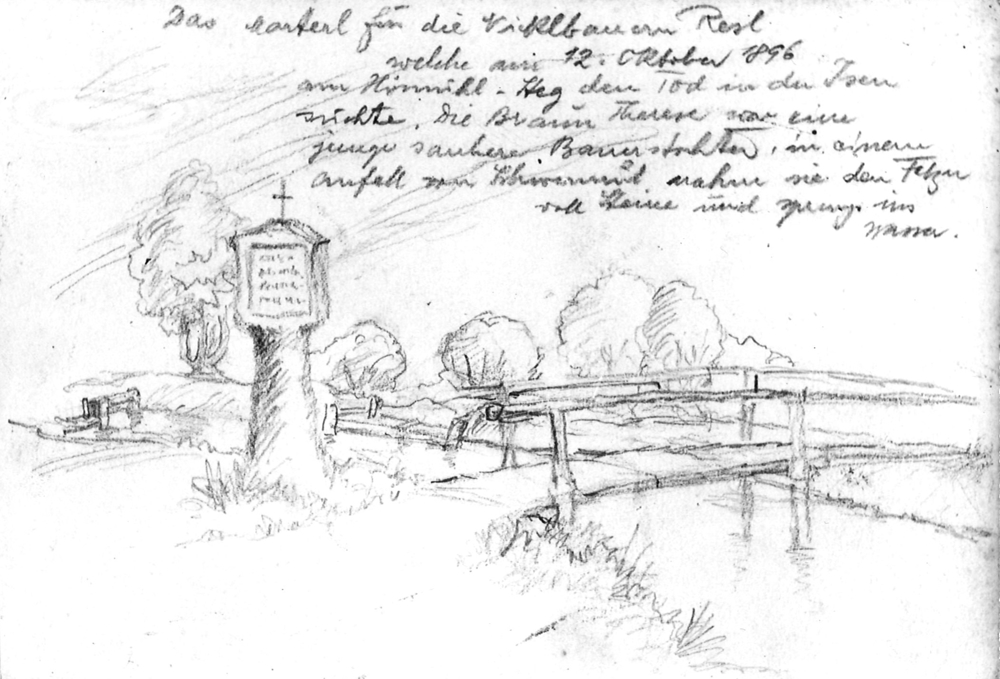 Das Marterl für die Nicklbauern Resl
welche am 12. Oktober 1896
am Himmikl-Steg den Tod in der Isen
suchte. Die Braun Therese war eine
junge saubere Bauerstochter, in einem
Anfall von Schwermut nahm sie den
voll Steine und sprang ins
Wasser.